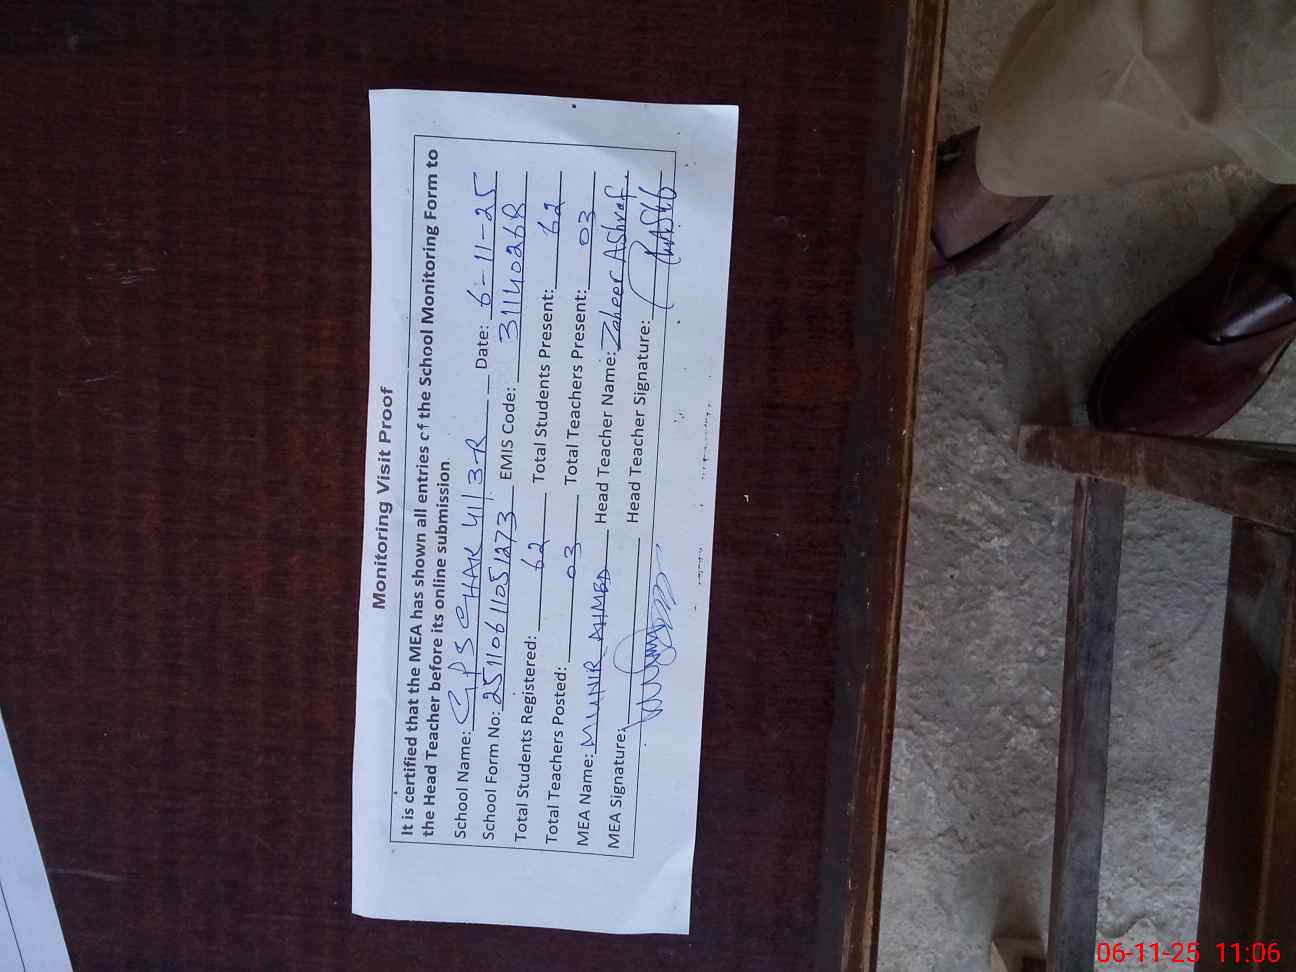 Monitoring Visit Proof
It is certified that the MEA has shown all entries of the School Monitoring Form to
the Head Teacher before its online submission
School Name: GPS CHAK 41/3-R Date: 6-11-25
School Form No: 25110611051273 EMIS Code: 31140268
Total Students Registered: 62 Total Students Present: 62
Total Teachers Posted: 03 Total Teachers Present: 03
MEA Name: MUNIR AHMED Head Teacher Name: Zaheer Ashraf
MEA Signature: Head Teacher Signature:
06-11-25 11:06